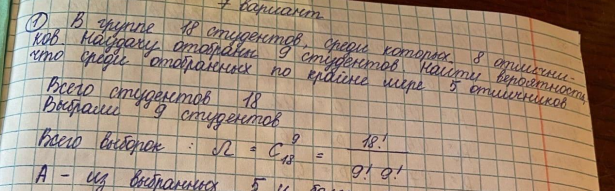 7 вариант
① В группе 18 студентов, среди которых 8 отлични-
ков наудачу отобраны 9 студентов Найти вероятность,
что среди отобранных по крайне мере 5 отличников
Всего студентов 18
Выбрали 9 студентов
Всего выборок : Ω = C₁₈⁹ = 18! / 9! 9!
А - из выбранных 5 и